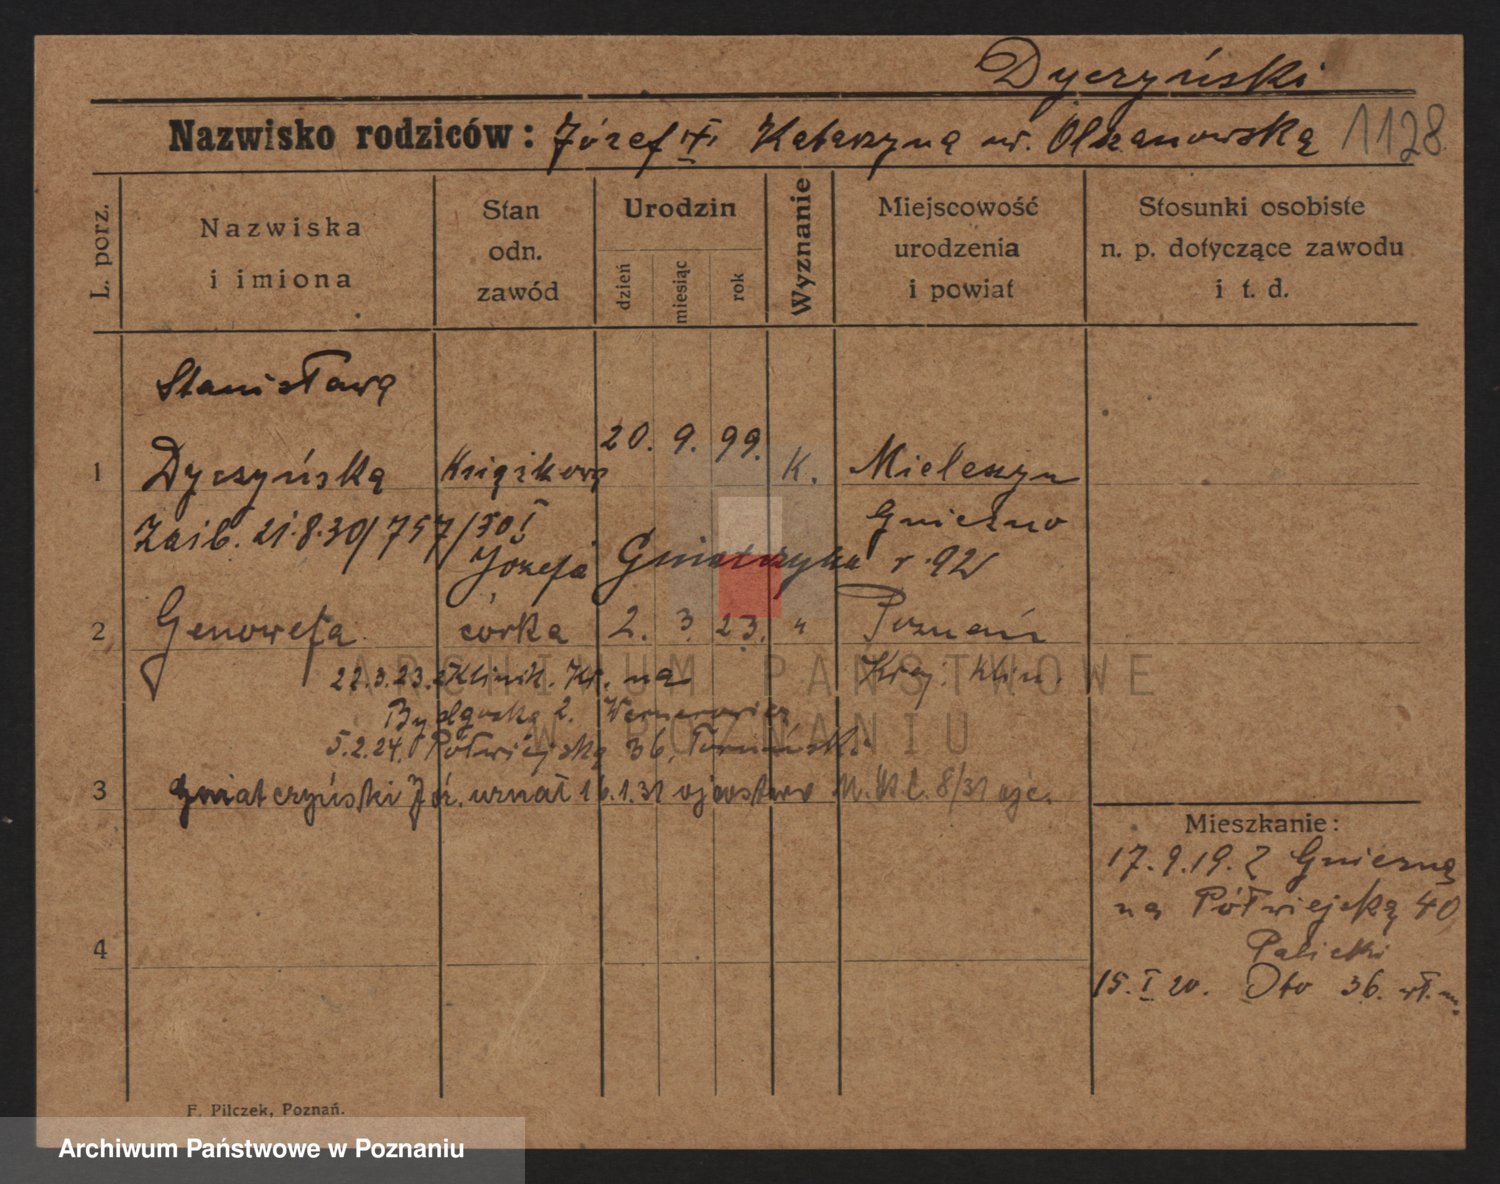 Dyczyński
Nazwisko rodziców: Józef Katarzyna ur. Olszanowska 1128
L. porz.
Nazwiska i imiona
Stan odn. zawód
Urodzin
dzień miesiąc rok
Wyznanie
Miejscowość urodzenia i powiat
Stosunki osobiste n. p. dotyczące zawodu i t. d.
Stanisława
1 Dyczyńska 20. 9. 99. K. Mieleszyn
Gniezno
21.8.30/757/
Józefa Gniatczyka r. 92
2 Genowefa córka 2. 3. 23. " Poznań
22.3.23. Klinik. Kr. na Kraj. Klin.
Bydgoska 2.
5.2.24. Półwiejska 36.
3 Gniatczyński Józ. uznał 16.1.31 ojcostwo 8/31
Mieszkanie:
17.9.19. Z Gniezna
na Półwiejską 40
Palicki
4
15. I 20. Oto 36.
F. Pilczek, Poznań.
ARCHIWUM PAŃSTWOWE
W POZNANIU
Archiwum Państwowe w Poznaniu